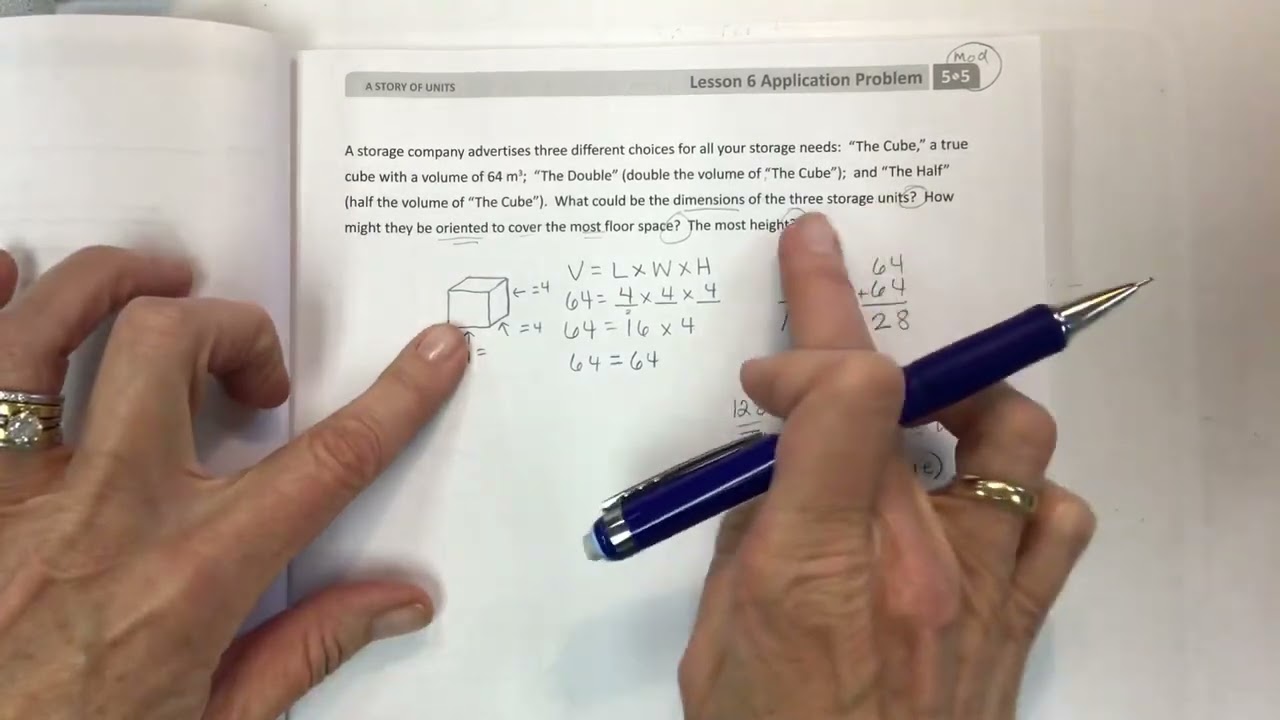 Mod
A STORY OF UNITS
Lesson 6 Application Problem 5•5
A storage company advertises three different choices for all your storage needs: “The Cube,” a true
cube with a volume of 64 m³; “The Double” (double the volume of “The Cube”); and “The Half”
(half the volume of “The Cube”). What could be the dimensions of the three storage units? How
might they be oriented to cover the most floor space? The most height?
V = L x W x H
64 = 4 x 4 x 4
64 = 16 x 4
64 = 64
= 4
= 4
=
64
+64
28